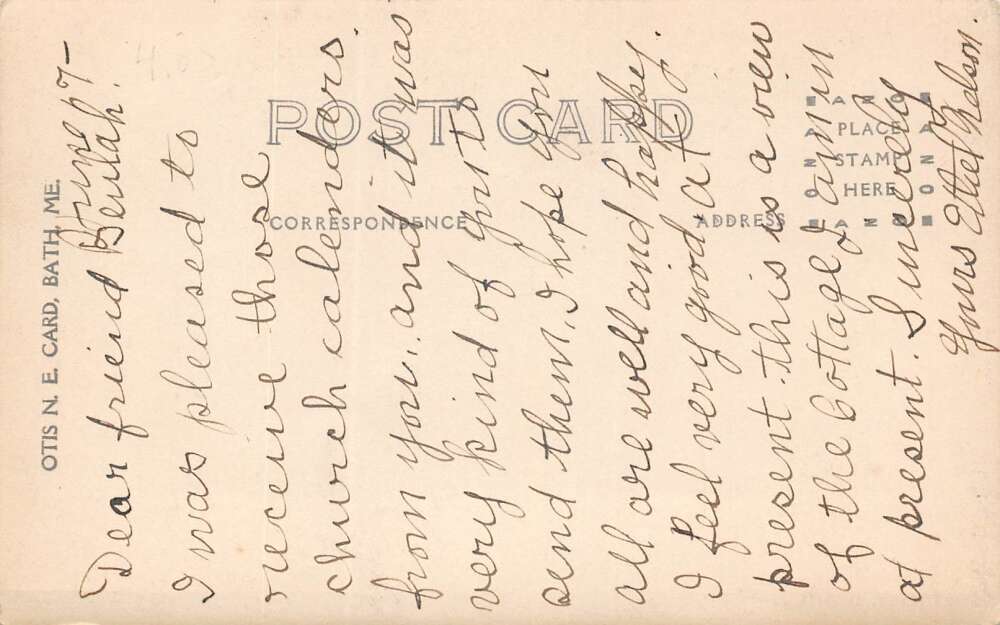 OTIS N. E. CARD, BATH, ME.
POST CARD
CORRESPONDENCE
ADDRESS
PLACE
STAMP
HERE
June 7-
Dear friend Beulah:
I was pleased to
receive those
church calenders.
from you.. and it was
very kind of you to
send them. I hope you
all are well and happy.
I feel very good at
present. this is a view
of the Cottage I am in
at present. Sincerely
Yours